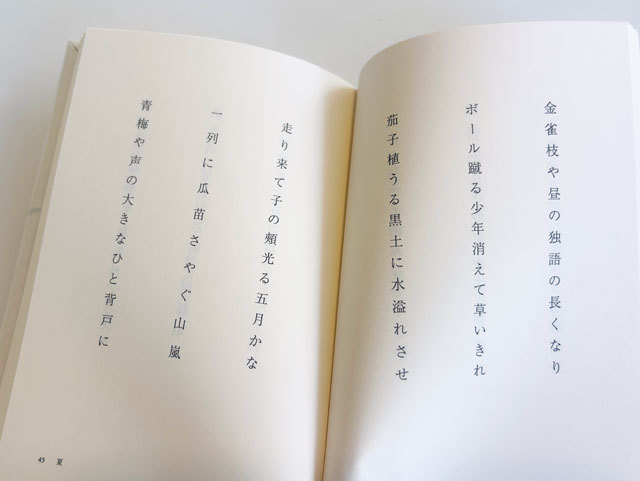 金雀枝や昼の独語の長くなり
ボール蹴る少年消えて草いきれ
茄子植うる黒土に水溢れさせ
走り来て子の頰光る五月かな
一列に瓜苗さやぐ山嵐
青梅や声の大きなひと背戸に
45 夏